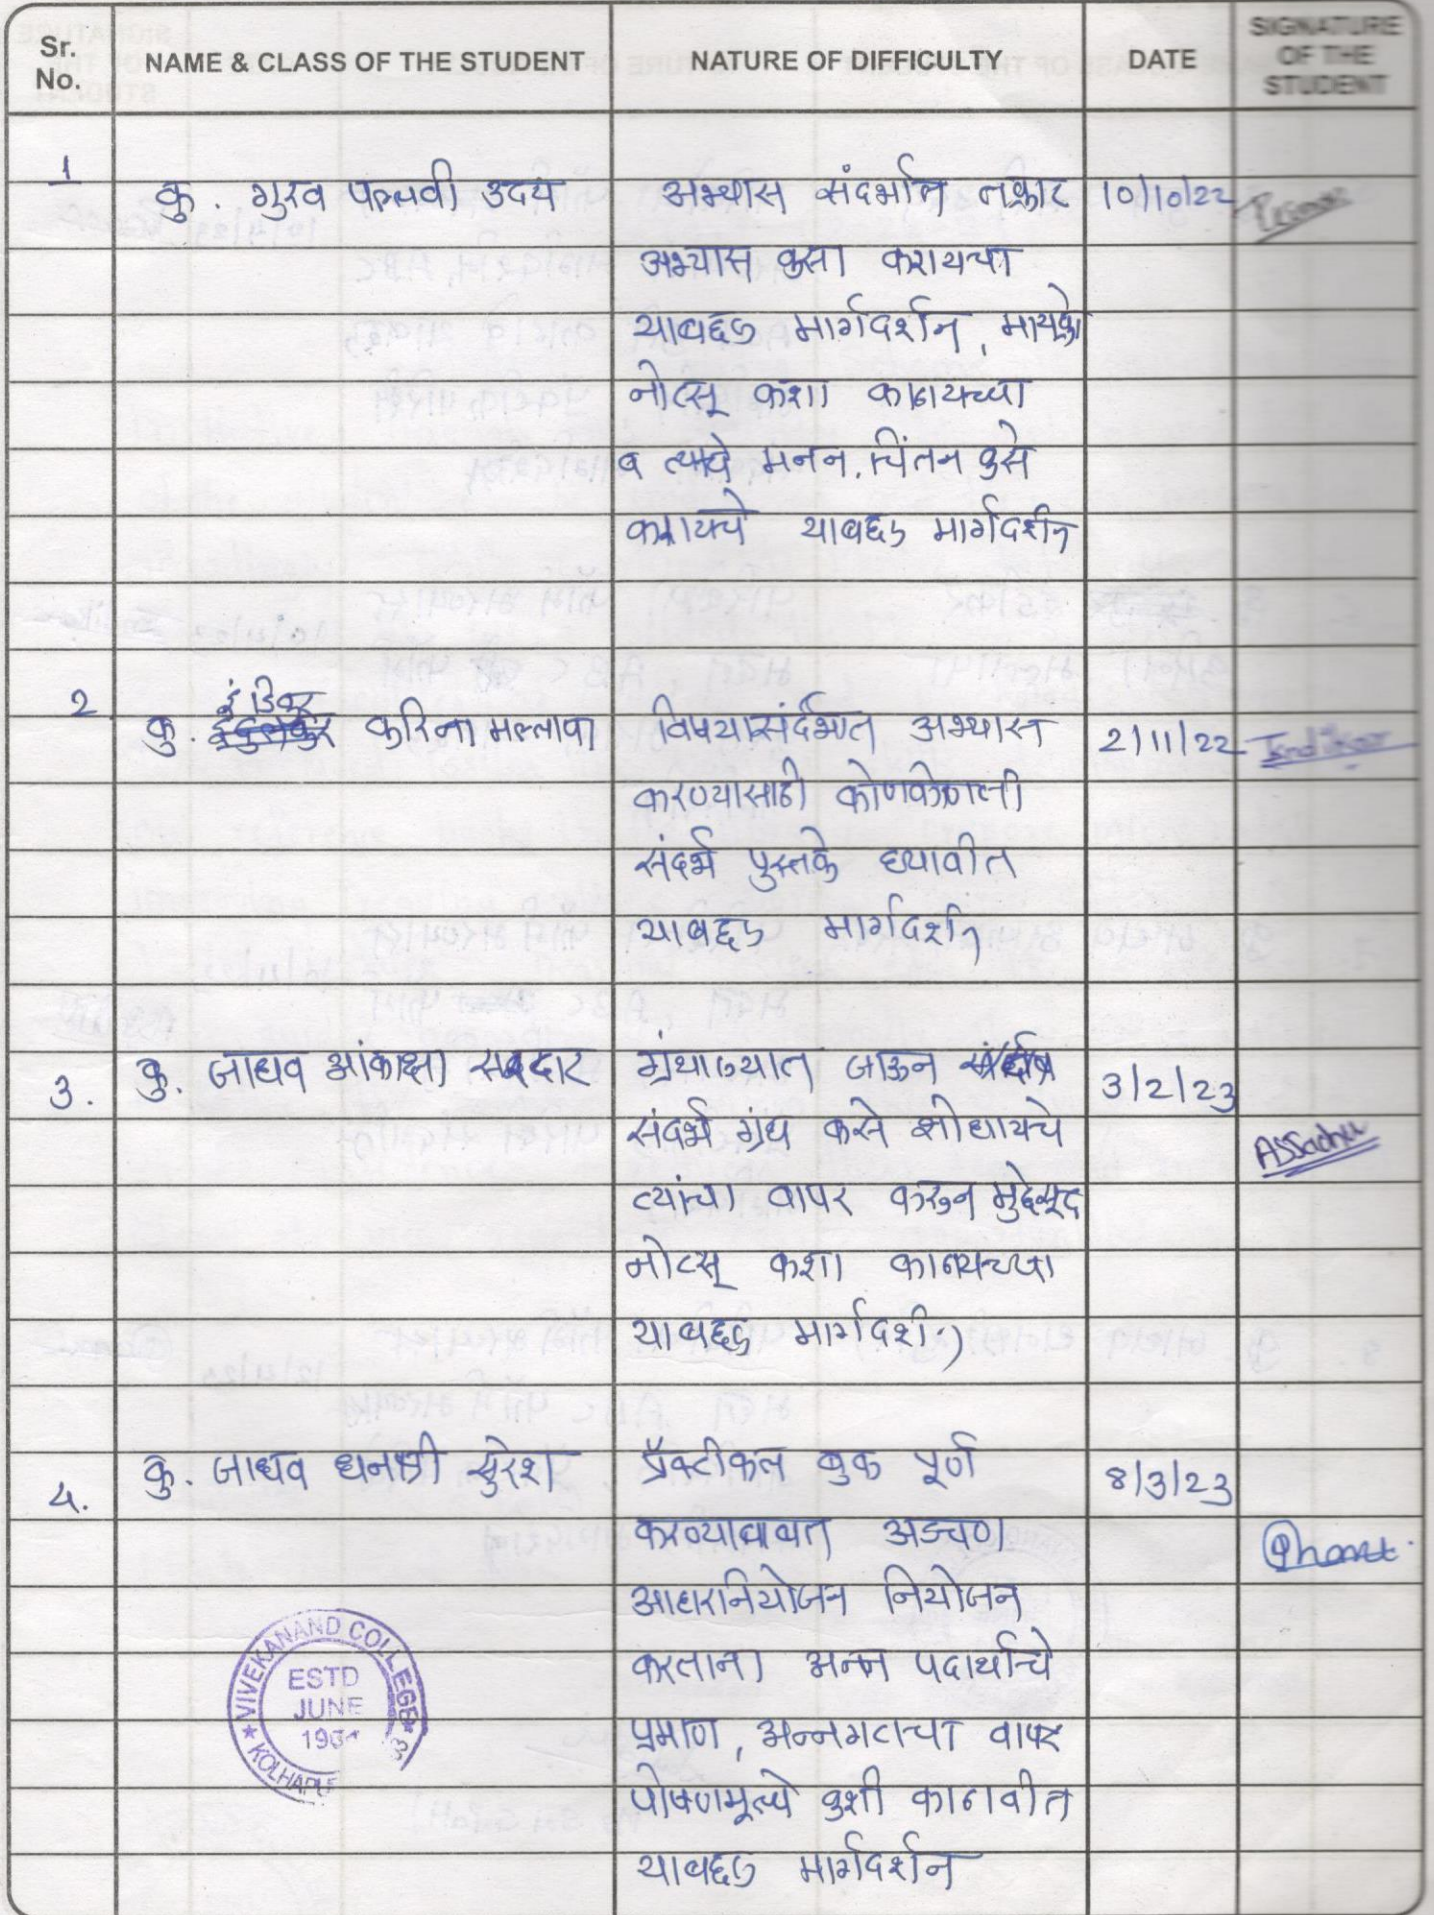 Sr. No. NAME & CLASS OF THE STUDENT NATURE OF DIFFICULTY DATE SIGNATURE OF THE STUDENT
1 कु. गुरव पल्लवी उदय अभ्यास संदर्भात तक्रार 10/10/22
अभ्यास कसा करायचा
याबद्दल मार्गदर्शन, मायक्रो
नोट्स् कशा काढायच्या
व त्याचे मनन, चिंतन कसे
करायचे याबद्दल मार्गदर्शन
2 कु. इंडिकर करिना मल्लापा विषयासंर्दभात अभ्यास 2/11/22 Indikar
करण्यासाठी कोणकोणती
संदर्भ पुस्तके घ्यावीत
याबद्दल मार्गदर्शन
3. कु. जाधव आंकाक्षा सरदार ग्रंथालयात जाऊन 3/2/23
संदर्भ ग्रंथ कसे शोधायचे
त्यांचा वापर करुन मुद्देसूद
नोट्स् कशा काढायच्या
याबद्दल मार्गदर्शन
4. कु. जाधव धनश्री सुरेश प्रॅक्टीकल बुक पूर्ण 8/3/23
करण्याबाबत अडचण
आहारनियोजन नियोजन
करताना अन्न पदार्थाचे
प्रमाण, अन्नगटाचा वापर
पोषणमूल्ये कशी काढावीत
याबद्दल मार्गदर्शन
VIVEKANAND COLLEGE
ESTD
JUNE
KOLHAPUR